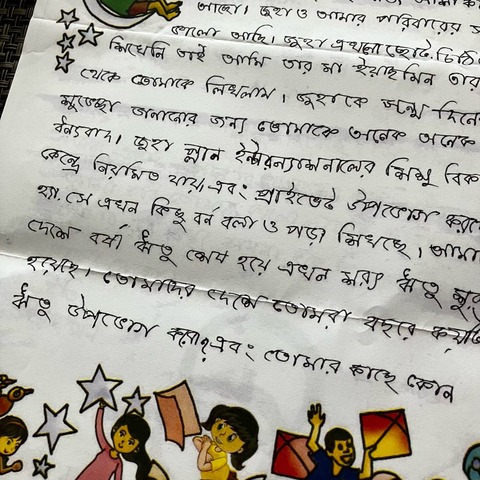 আছো। জুহা ও আমার পরিবারের
ভালো আছি। জুহা এখনো ছোট. চিঠি
শিখেনি তাই আমি তার মা ইয়াছমিন তার
থেকে তোমাকে লিখলাম। জুহাকে জন্ম দিনে
শুভেচ্ছা জানানোর জন্য তোমাকে অনেক অনেক
ধন্যবাদ। জুহা প্লান ইন্টারন্যাশনালের শিশু বিক
কেন্দ্রে নিয়মিত যায়। এবং প্রাইভেট উপভোগ করে
হ্যা. সে এখন কিছু বর্ন বলা ও পড়া শিখছে। আমা
দেশে বর্ষা ঋতু শেষ হয়ে এখন শরৎ ঋতু শুরু
হয়েছে। তোমাদের দেশে তোমরা বছরে কয়টি
ঋতু উপভোগ করো? এবং তোমার কাছে কোন